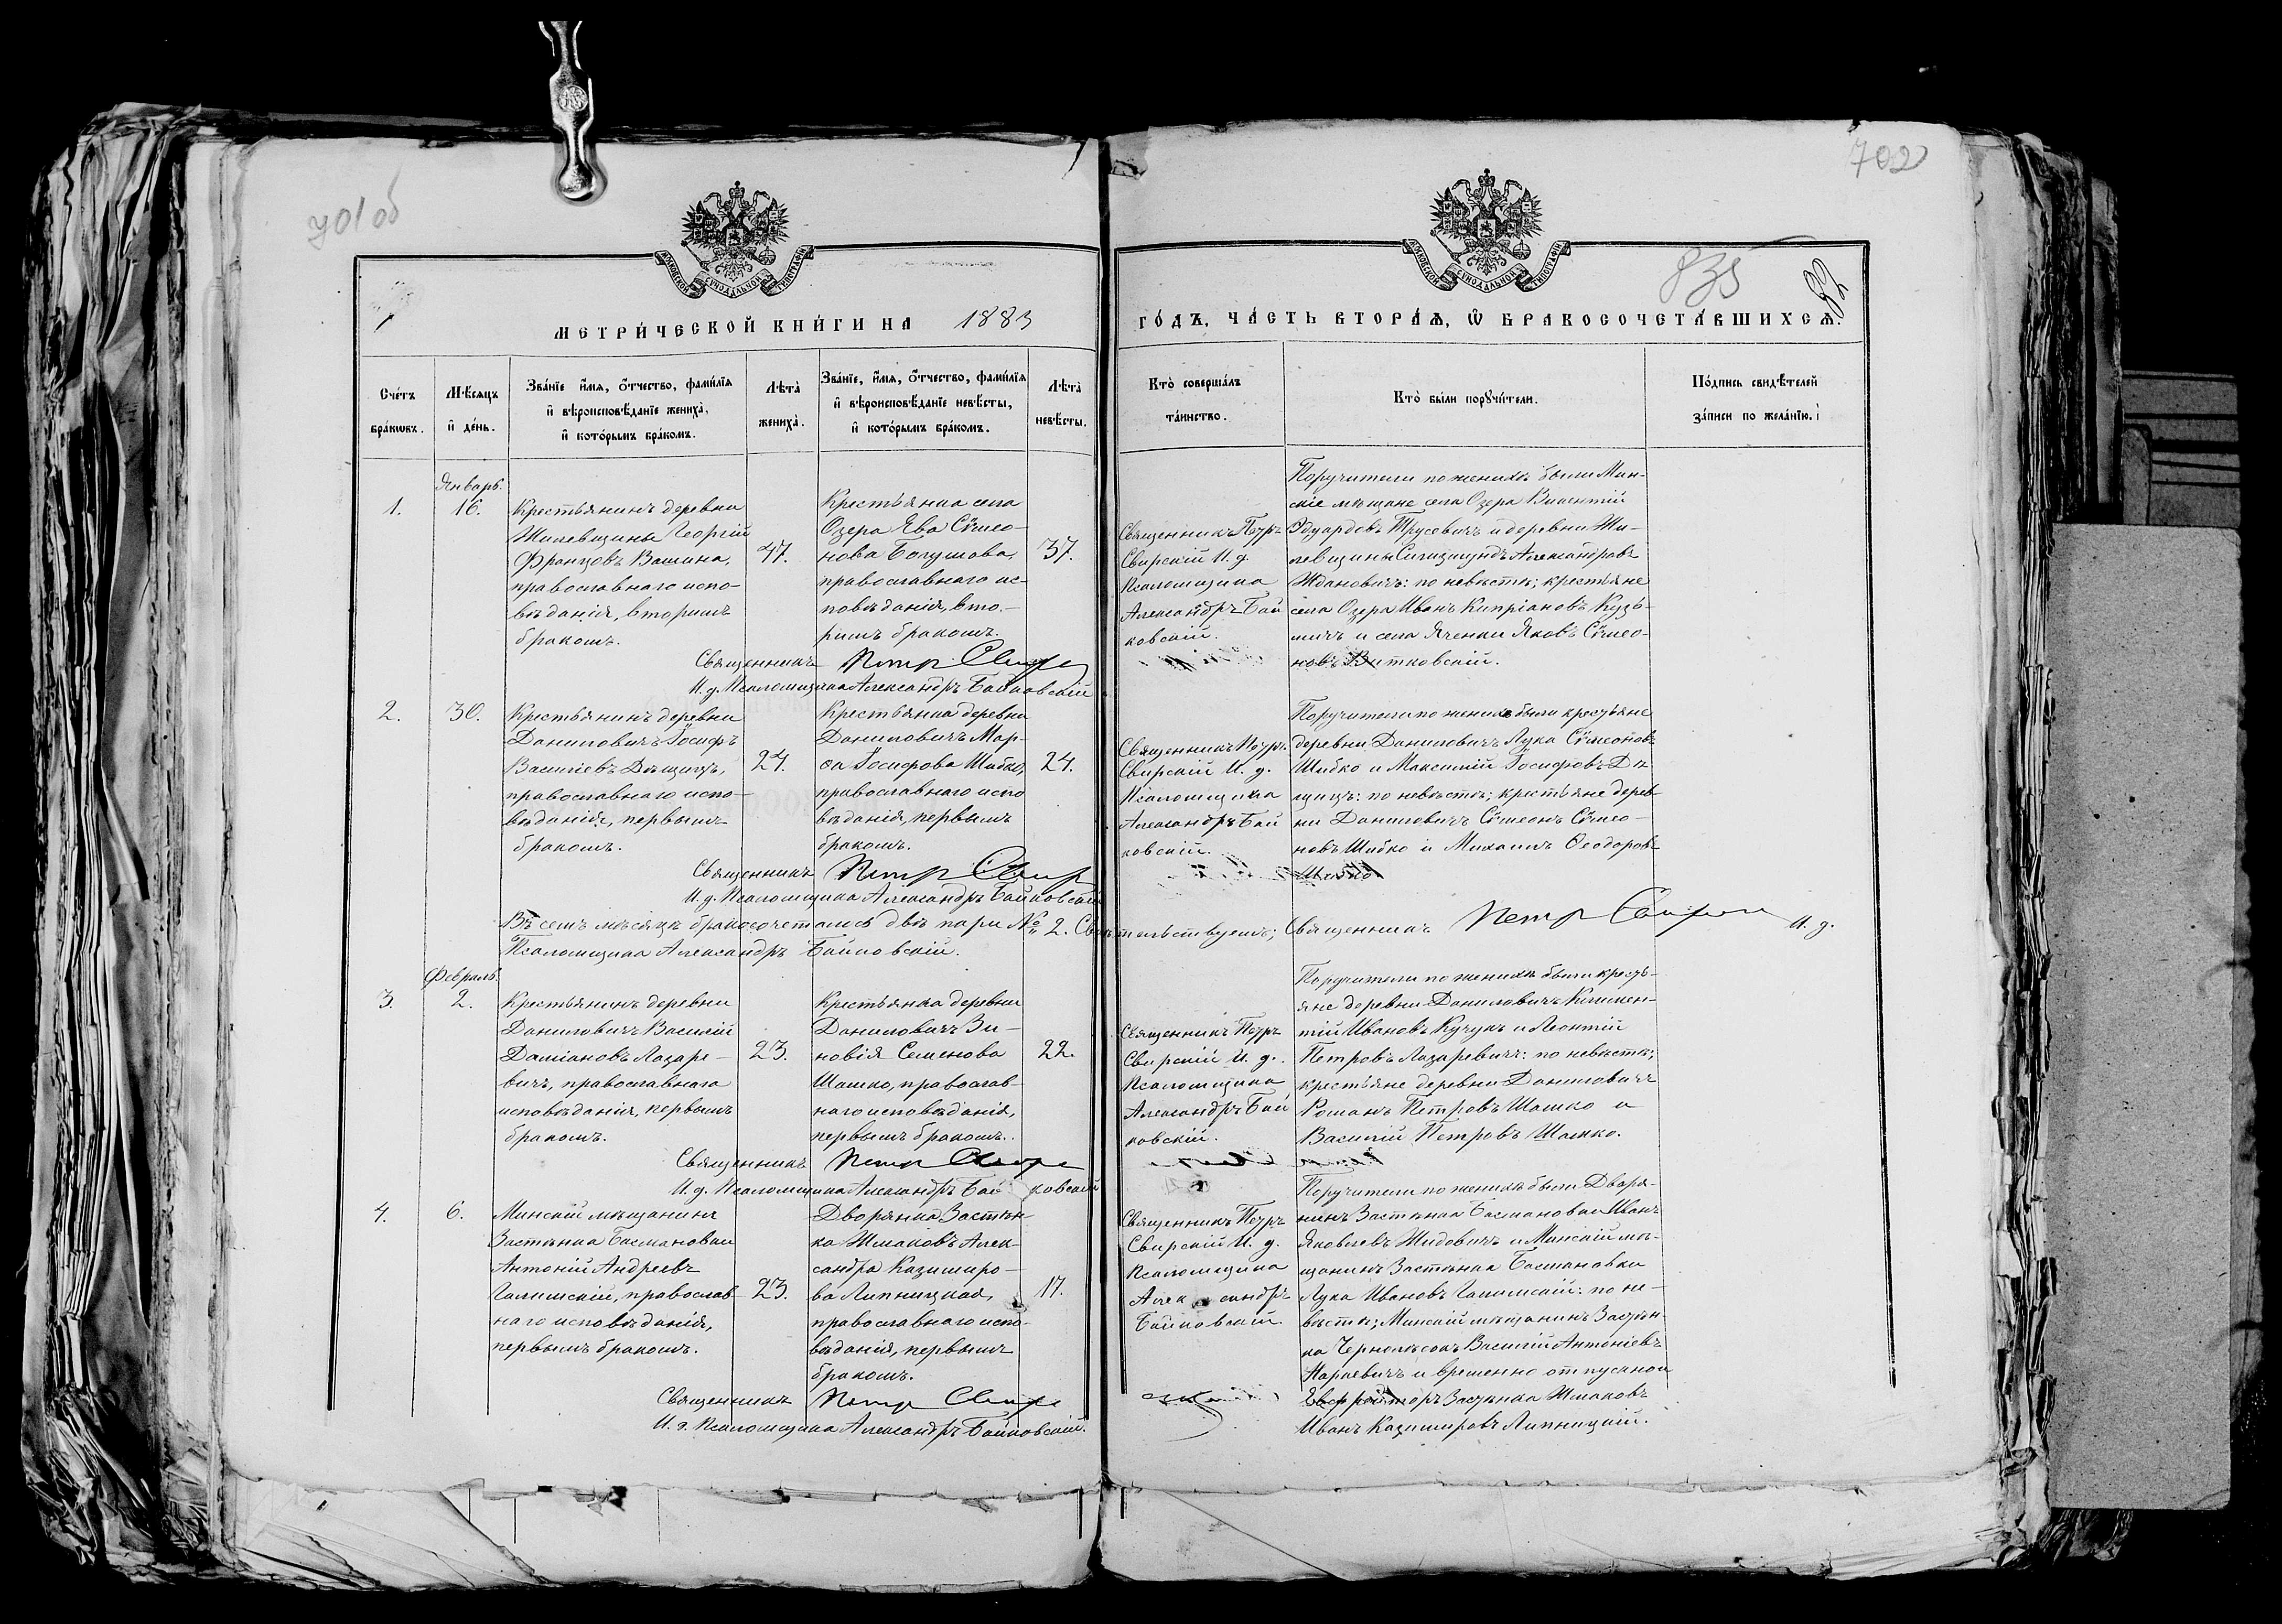 701 об
702
835
82
МОСКОВСКОЙ СѴНОДАЛЬНОЙ ТИПОГРАФІИ
МОСКОВСКОЙ СѴНОДАЛЬНОЙ ТИПОГРАФІИ
МЕТРИ́ЧЕСКОЙ КНИ́ГИ НА 1883
ГО́ДЪ, ЧА́СТЬ ВТОРА́Ѧ, Ѡ҆ БРАКОСОЧЕТА́ВШИХСѦ.
Сче́тъ
бра́кѡвъ.
Мѣ́сяцъ
и҆ де́нь.
Зва́нїе и҆́мя, ѻ҆́тчество, фами́лїя
и҆ вѣроисповѣ́данїе жениха̀,
и҆ кото́рымъ бра́комъ.
Лѣта̀
жениха̀.
Зва́нїе, и҆́мя, ѻ҆́тчество, фами́лїя
и҆ вѣроисповѣ́данїе невѣ́сты,
и҆ кото́рымъ бра́комъ.
Лѣта̀
невѣ́сты.
Кто̀ соверша́лъ
та́инство.
Кто̀ бы́ли порꙋчи́тели.
По́дпись свидѣ́телей
за́писи по жела́нїю.
Январь.
1.
16.
Крестьянинъ деревни
Жилевщины Георгій
Францовъ Вашина,
православнаго испо-
вѣданія, вторымъ
бракомъ.
47.
Крестьянка села
Озера Ева Сѵмео-
нова Богушова,
православнаго ис-
повѣданія, вто-
рымъ бракомъ.
37.
Священникъ Петръ
Свирскій И. д.
Псаломщика
Александръ Бай
ковскій.
Поручители по женихѣ были Мин-
скіе мѣщане села Озера Викентій
Эдуардовъ Трусевичъ и деревни Жи-
левщины Сигизмундъ Александровъ
Ждановичъ: по невѣстѣ; крестьяне
села Озера Иванъ Кипріановъ Кузь-
мичъ и села Яченки Яковъ Сѵмео-
новъ Витковскій.
Священникъ Петръ Свирс
И. д. Псаломщика Александръ Байковскій
2.
30.
Крестьянинъ деревни
Даниловичъ Іосифъ
Василіевъ Дѣщицъ,
православнаго испо-
вѣданія, первымъ
бракомъ.
24.
Крестьянка деревни
Даниловичъ Мар-
ѳа Іосифова Шибко,
православнаго испо
вѣданія, первымъ
бракомъ.
24.
Священникъ Петръ
Свирскій И. д.
Псаломщика
Александръ Бай
ковскій.
Поручители по женихѣ были крестьяне
деревни Даниловичъ Лука Сѵмеоновъ
Шибко и Максимій Іосифовъ Дѣ
щицъ: по невѣстѣ; крестьяне дерев-
ни Даниловичъ Сѵмеонъ Сѵмео-
новъ Шибко и Михаилъ Ѳеодоровъ
Шибко
Священникъ Петръ Свирс
И. д. Псаломщика Александръ Байковскій
Въ семъ мѣсяцѣ бракосочетались двѣ пары № 2. Свидѣтельствуемъ; Священникъ Петръ Свирскій И. д.
Псаломщика Александръ Байковскій.
Февраль.
3.
2.
Крестьянинъ деревни
Даниловичъ Василій
Даміановъ Лазаре-
вичъ, православнаго
исповѣданія, первымъ
бракомъ.
23.
Крестьянка деревни
Даниловичъ Зи-
новія Семенова
Шашко, православ-
наго исповѣданія,
первымъ бракомъ.
22.
Священникъ Петръ
Свирскій И. д.
Псаломщика
Александръ Бай
ковскій.
Поручители по женихѣ были кресть-
яне деревни Даниловичъ Климен-
тій Ивановъ Кучукъ и Леонтій
Петровъ Лазаревичъ: по невѣстѣ;
крестьяне деревни Даниловичъ
Романъ Петровъ Шашко и
Василій Петровъ Шашко.
Священникъ Петръ Свирс
И. д. Псаломщика Александръ Байковскій
4.
6.
Минскій мѣщанинъ
Застѣнка Басмановки
Антоній Андреевъ
Галимскій, православ
наго исповѣданія,
первымъ бракомъ.
23.
Дворянка Застѣн-
ка Шмаковъ Алек-
сандра Казимиро-
ва Липницкая,
православнаго испо-
вѣданія, первымъ
бракомъ.
17.
Священникъ Петръ
Свирскій И. д.
Псаломщика
Александръ
Байковскій.
Поручители по женихѣ были Дворя-
нинъ Застѣнка Басмановки Иванъ
Яковлевъ Жидовичъ и Минскій мѣ-
щанинъ Застѣнка Басмановки
Лука Ивановъ Галимскій: по не-
вѣстѣ; Минскій мѣщанинъ Застѣн-
ка Чернолѣсокъ Василій Антоніевъ
Наркевичъ и временно отпускной
Ефрейторъ Застѣнка Шмаковъ
Иванъ Казимировъ Липницкій.
Священникъ Петръ Свирс
И. д. Псаломщика Александръ Байковскій.